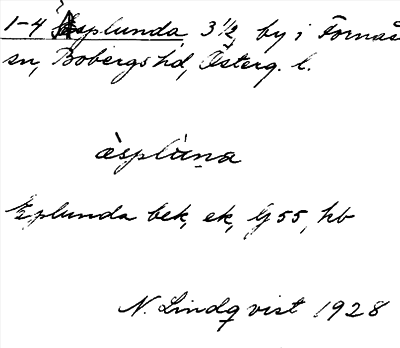 1-4 Äsplunda, 3 1/2, by i Fornås
sn, Bobergs hd, Österg. l.
äsplùṇa
Eplunda bek, ek, G 55, hb
N. Lindqvist 1928